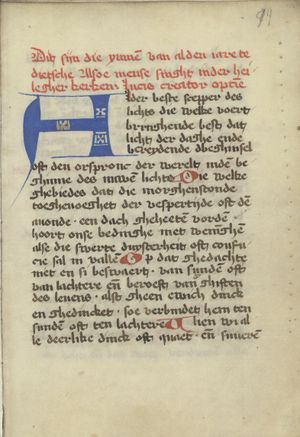 94
Dit sijn die ymnen van alden iaere te
dietsche Alsoe mense singht inder hei
legher kerken lucis creator optie
Alder beste scepper des
lichts die welke voert
bringhende best dat
licht der daghe ende
bereydende dbeghinsel
oft den orspronc der werelt inden be
ghinne des nuwen lichts Die welke
ghebiedes dat die morghenstonde
toeghenoeght der vespertijt oft den
auonde . een dach gheheeten worde .
hoort onse bedinghe met weenghen
alse die swerte duysterheit oft confu
cie sal in vallen Op dat ghedachte
met en si beswaert . van sunden oft
van lachtere en beroeft van ghiften
des leuens . alst gheen ewich dinck
en ghedincket . soe verbindet hem ten
sunden oft ten lachtere Alien wi al
le deerlike dinck oft quaet . en suueren